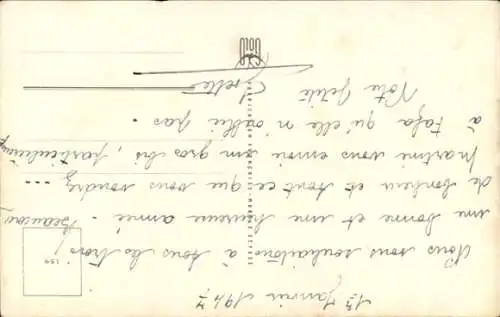 13 Janvier 1947
Nous vous souhaitons à tous les trois
une bonne et une heureuse année. Beaucoup
de bonheur et tout ce que vous voudrez ...
Martine vous envoie un gros bis, particulièrement
à Tata qu'elle n'oublie pas.
Votre petite
Giselle
159